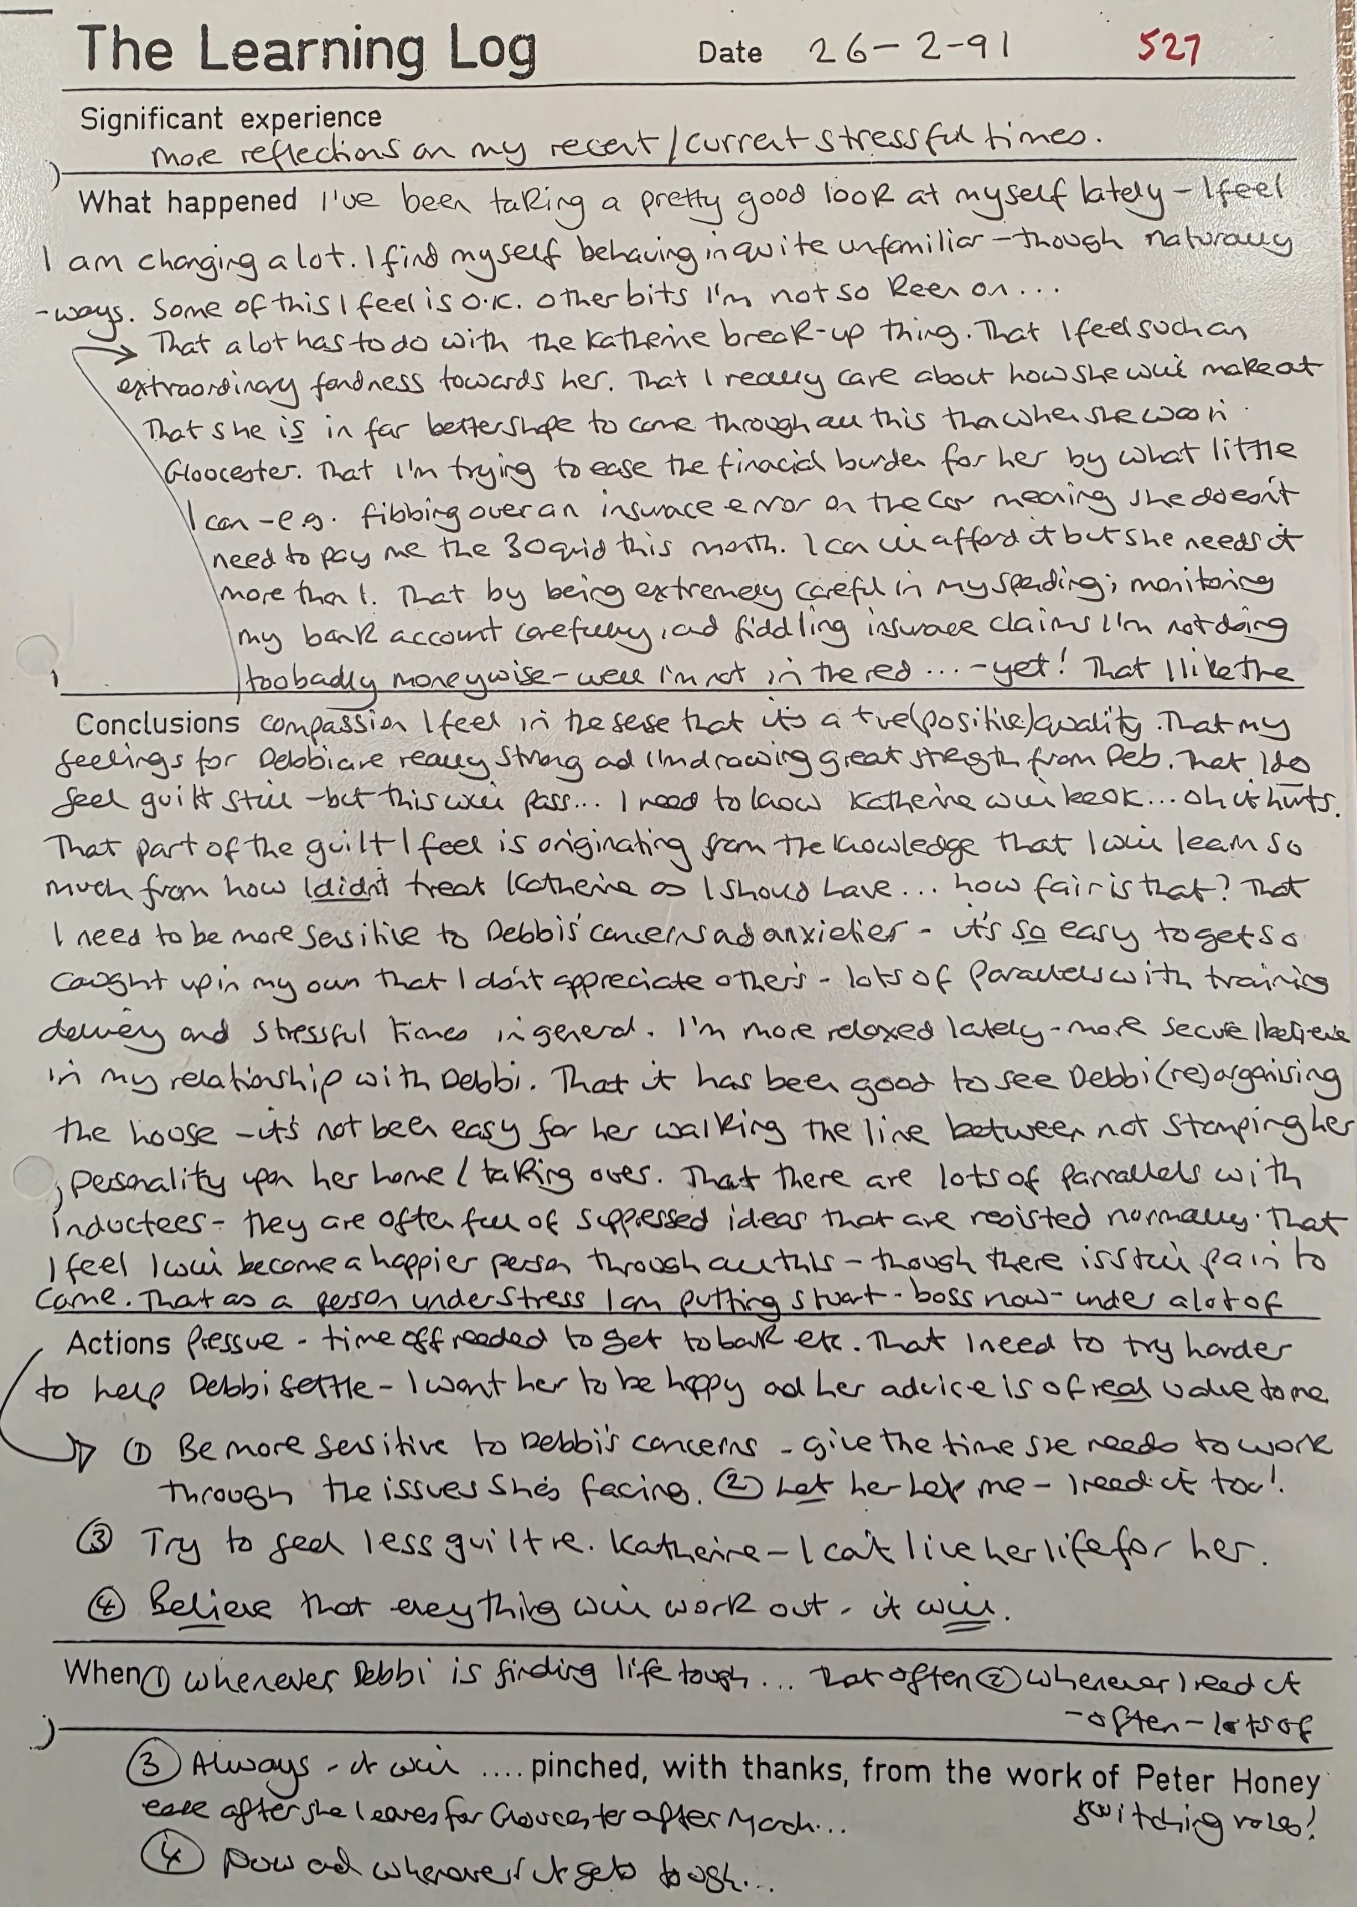 The Learning Log Date 26-2-91 527
Significant experience
more reflections on my recent/current stressful times.
What happened I've been taking a pretty good look at myself lately - I feel
I am changing a lot. I find myself behaving in quite unfamiliar - though naturally
- ways. Some of this I feel is O.K. Other bits I'm not so keen on...
That a lot has to do with the Katherine break-up thing. That I feel such an
extraordinary fondness towards her. That I really care about how she will make out
That she is in far better shape to come through all this than when she was in
Gloocester. That I'm trying to ease the finacial burden for her by what little
I can - e.g. fibbing over an insurace error on the car meaning she doesn't
need to pay me the 30 quid this month. I can ill afford it but she needs it
more than I. That by being extremely careful in my spending; monitoring
my bank account carefully, and fiddling insurace claims I'm not doing
too badly moneywise - well I'm not in the red ... - yet! That I like the
Conclusions compassion I feel in the sense that it's a +ve (positive) quality. That my
feelings for Debbi are really strong and I'm drawing great strength from Deb. That I do
feel guilt still - but this will pass... I need to know Katherine will be OK... oh it hurts.
That part of the guilt I feel is originating from the knowledge that I will learn so
much from how I didn't treat Katherine as I should have... how fair is that? That
I need to be more sensitive to Debbi's concerns and anxieties - it's so easy to get so
caught up in my own that I don't appreciate others - lots of parallels with training
delivery and stressful times in general. I'm more relaxed lately - more secure I believe
in my relationship with Debbi. That it has been good to see Debbi (re)organising
the house - it's not been easy for her walking the line between not stamping her
personality upon her home / taking over. That there are lots of parrallels with
inductees - they are often full of suppressed ideas that are resisted normally. That
I feel I will become a happier person through all this - though there is still pain to
come. That as a person under stress I am putting Stuart - boss now - under a lot of
Actions pressue - time off needed to get to bank etc. That I need to try harder
to help Debbi settle - I want her to be happy and her advice is of real value to me
① Be more sensitive to Debbi's concerns - give the time she needs to work
through the issues she's facing. ② Let her help me - I need it too!
③ Try to feel less guilt re. Katherine - I can't live her life for her.
④ Believe that everything will work out - it will.
When ① whenever Debbi is finding life tough... that often ② whenever I need it
- often - lots of
③ Always - it will .... pinched, with thanks, from the work of Peter Honey
ease after she leaves for Gloucester after March... switching roles!
④ Now and whenever it gets tough...